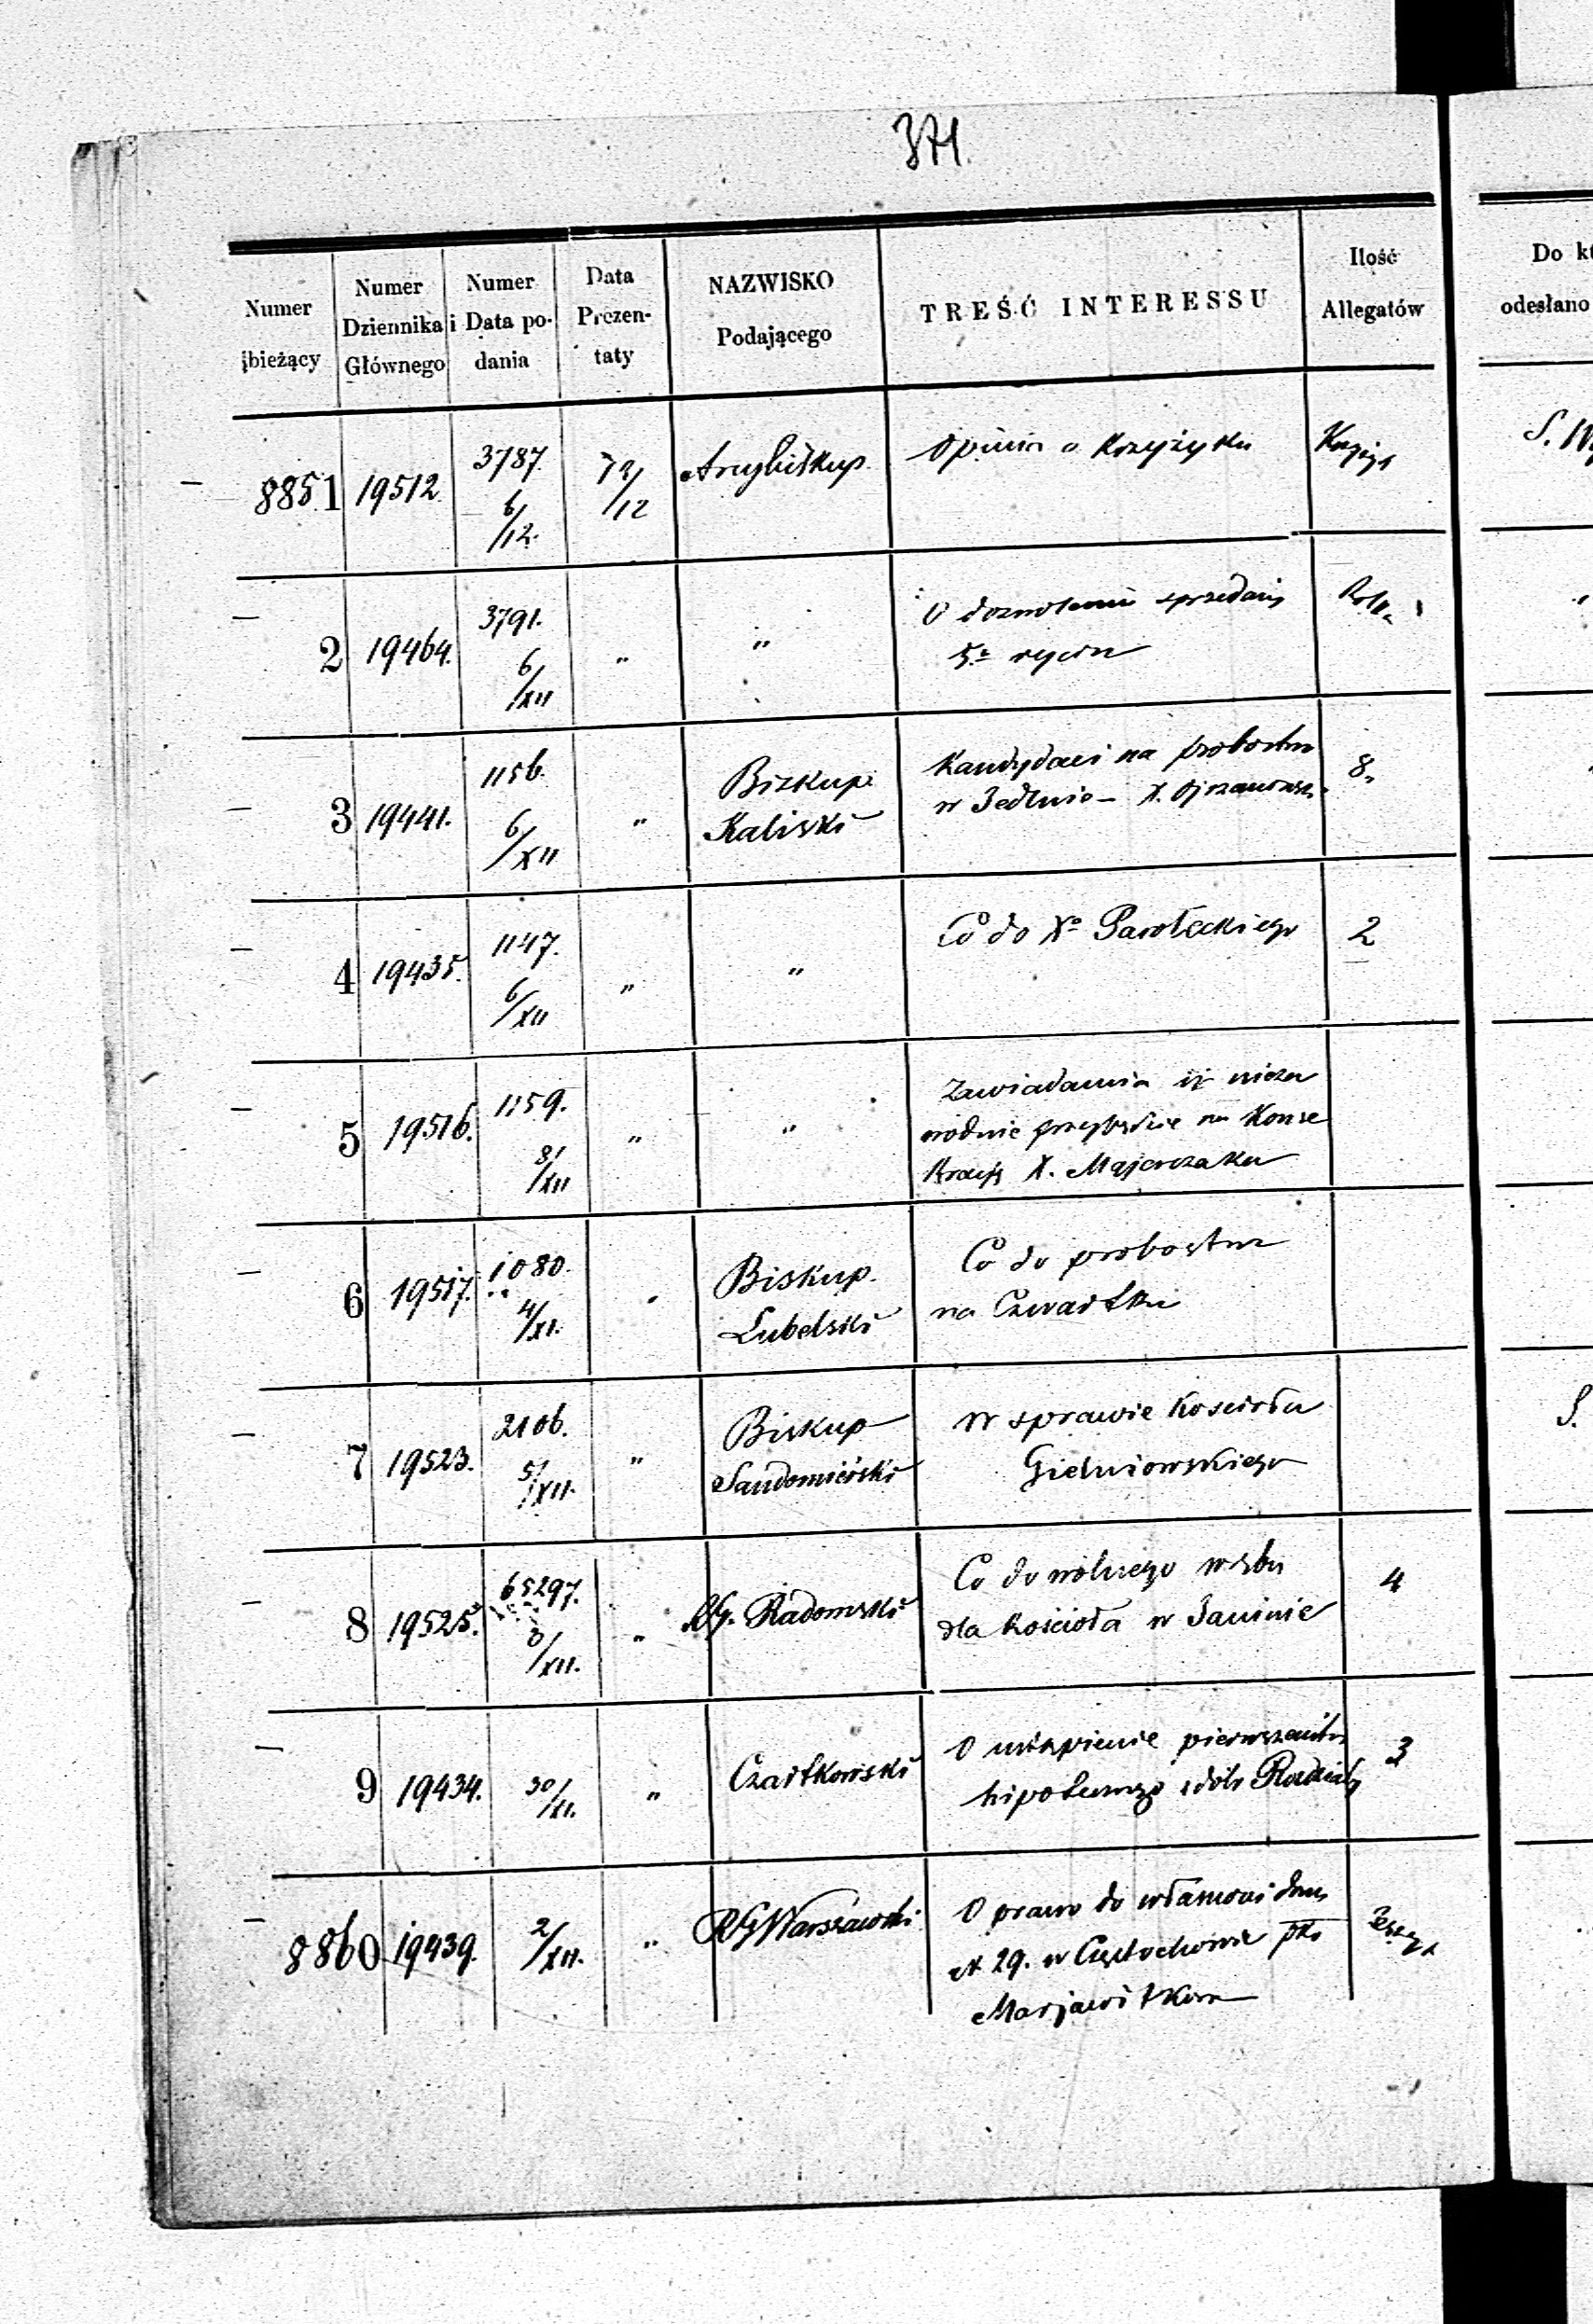 371.
Numer
bieżący
Numer
Dziennika
Głównego
Numer
i Data po-
dania
Data
Prezen-
taty
NAZWISKO
Podającego
TREŚĆ INTERESSU
Ilość
Allegatów
Do kt
odesłano
8851 19512 3787. 6/12. 12 Arcybiskup Opinia o Krzyżyku
2 19464. 3791. 6/XII " " O dozwolenie sprzedaży
rycin
3 19441. 1156. 6/XII " Biskup
Kaliski
Kandydaci na probostwo 8
w Jedlnie - X.
4 19435. 1147. 6/XII " " Co do Xa 2
5 19516. 1159. 8/XII " " Zawiadamia iż nieza
wodnie przybędzie na Konse
kracyą X. Majerczaka
6 19517. 1080. 4/XI. " Biskup
Lubelski
Co do probostwa
na Czwartku
7 19523. 2106. 5/XII. " Biskup
Sandomierski
W sprawie Kościoła
Gielniowskiego
8 19525. 65297. /XII. " RG. Radomski Co do wolnego wrębu 4
dla Kościoła w
9 19434. 30/XI. " Czartkowski O ustąpienie pierwszeństwa 3
hipotecznego z dóbr
8860 19439. 2/XII. " RG Warszawski O prawo do własności domu Zeszyt
N 29. w Częstochowie
Marjawitkom